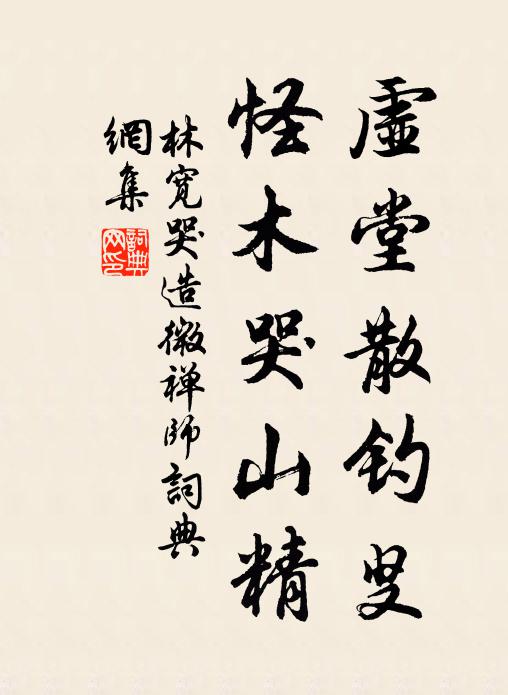 虛堂散釣叟
怪木哭山精
林寬哭造微禅師詞典
網集
詞典
网印